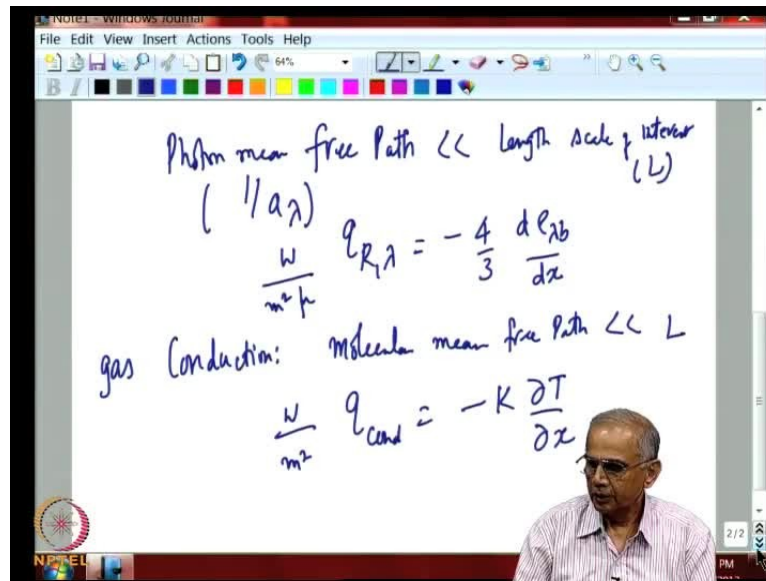 Note1 - Windows Journal
File Edit View Insert Actions Tools Help
64%
B I
Photon mean free Path << Length scale of interest
(L)
( 1/aλ)
W/m² μ qR,λ = - 4/3 deλb/dx
gas Conduction: Molecular mean free Path << L
W/m² qcond = - K ∂T/∂x
2/2
NPTEL
PM